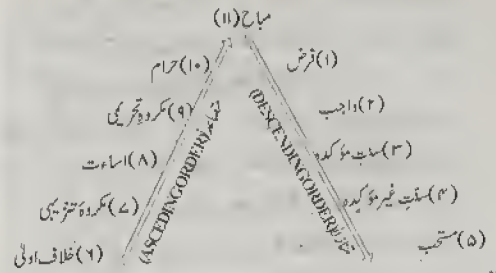 مباح (۱۱)
(۱) فرض
(۲) واجب
(۳) سنت مؤکدہ
(۴) سنّتِ غیر مؤکدہ
(۵) مستحب
(DESCENDINGORDER)
(۱۰) حرام
(۹) مکروہِ تحریمی
(۸) اساءت
(۷) مکروہ تنزیہی
(۶) خلاف اولیٰ
(ASCEDINGORDER)